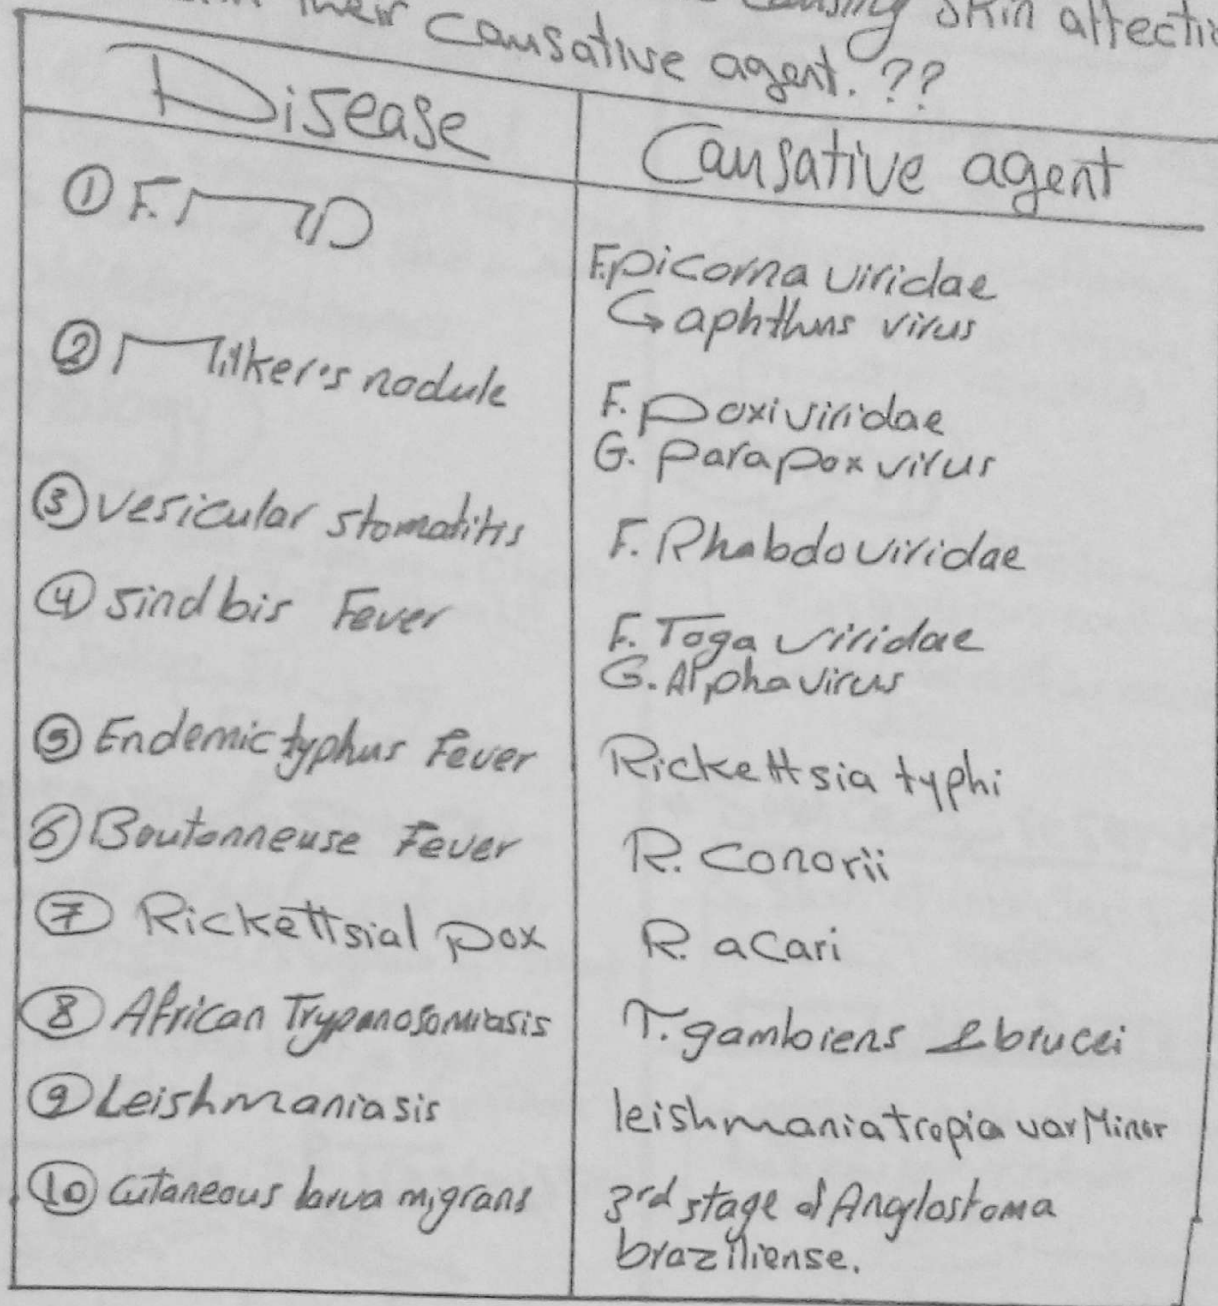 their causing skin affecti
causative agent. ??
Disease
Causative agent
① F.MD
F.picorna viridae
↳ aphthus virus
② Milker's nodule
F. poxiviridae
G. parapox virus
③ vesicular stomatitis
F. Rhabdoviridae
④ sindbis Fever
F. Toga viridae
G. Alphavirus
⑤ Endemic typhus Fever
Rickettsia typhi
⑥ Boutonneuse Fever
R. Conorii
⑦ Rickettsial pox
R. acari
⑧ African Trypanosomiasis
T. gambiens & brucei
⑨ Leishmaniasis
leishmania tropia var Minor
⑩ cutaneous larva migrans
3rd stage of Anglostoma
braziliense.